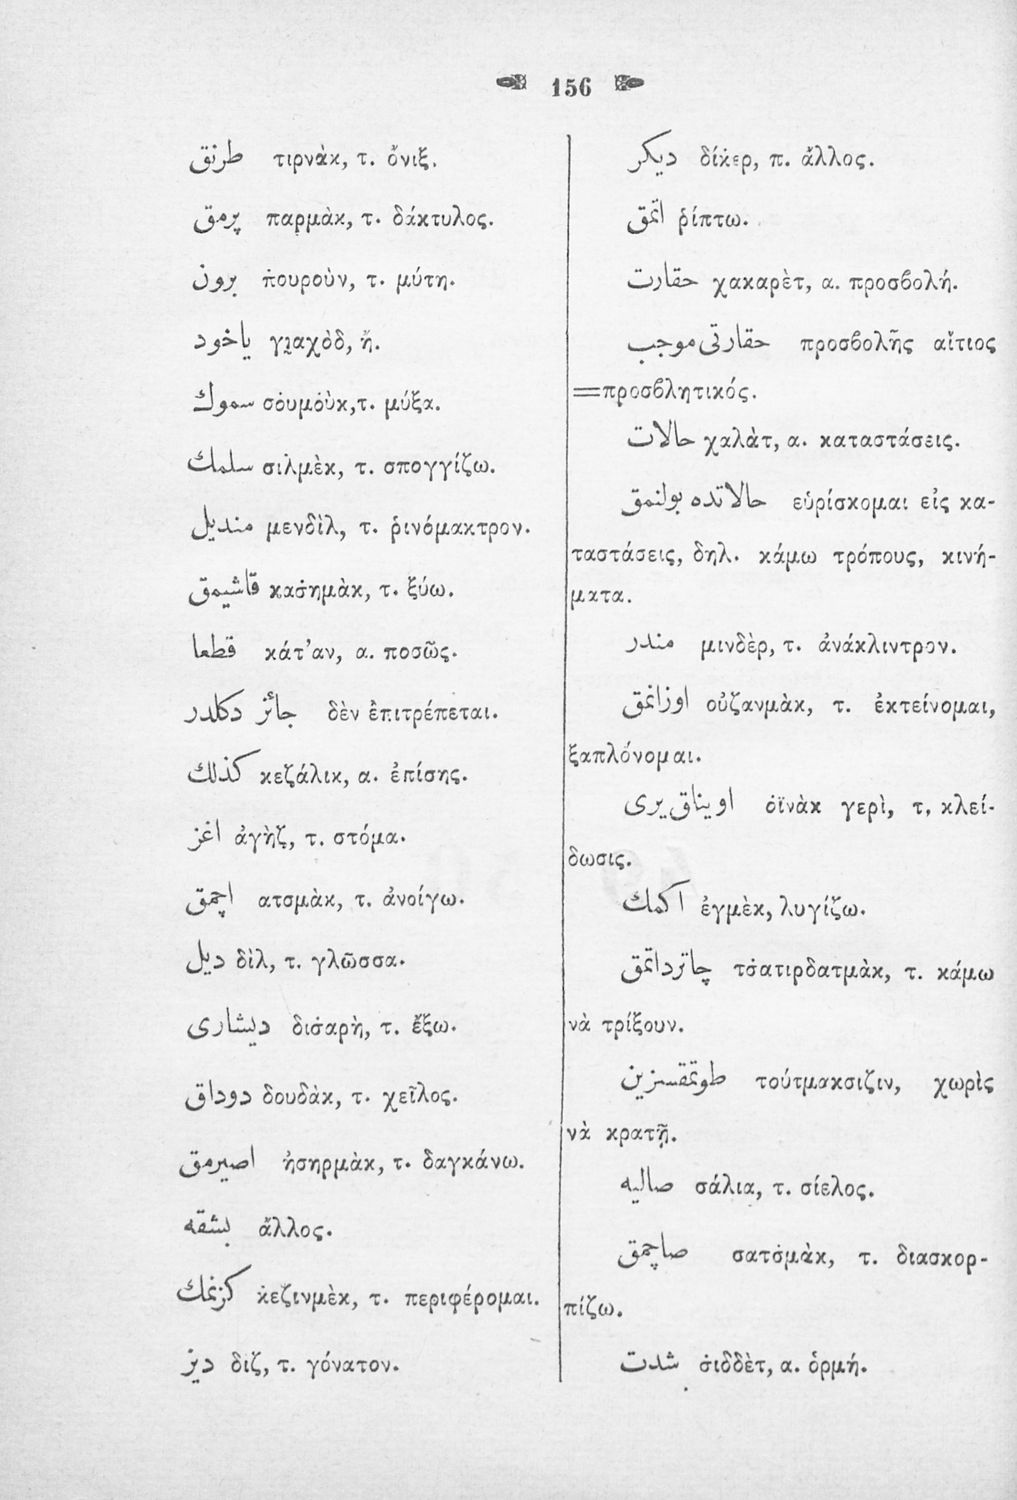 156
طرنق τιρνὰκ, τ. ὄνιξ.
پرمق παρμὰκ, τ. δάκτυλος.
برون π̇ουροὺν, τ. μύτη.
ياخود γιαχὸδ, ἤ.
سموك σὀυμὀὺκ, τ. μύξα.
سلمك σιλμὲκ, τ. σπογγίζω.
منديل μενδὶλ, τ. ῥινόμακτρον.
قاشيمق κασ̇ημὰκ, τ. ξύω.
قطعا κάτ'αν, α. ποσῶς.
جائز دكلدر δὲν ἐπιτρέπεται.
كذلك κεζάλικ, α. ἐπίσης.
اغز ἀγὴζ, τ. στόμα.
اچمق ατσμὰκ, τ. ἀνοίγω.
ديل δὶλ, τ. γλῶσσα.
ديشارى δισ̇αρὴ, τ. ἔξω.
دوداق δουδὰκ, τ. χεῖλος.
اصيرمق ἠσηρμὰκ, τ. δαγκάνω.
بشقه ἄλλος.
كزنمك κ̇εζινμὲκ, τ. περιφέρομαι.
ديز διζ, τ. γόνατον.
ديكر δίκ̇ερ, π. ἄλλος.
اتمق ῥίπτω.
حقارت χακαρὲτ, α. προσβολή.
حقارتى موجب προσβολῆς αἴτιος
=προσβλητικός.
حالات χαλὰτ, α. καταστάσεις.
حالاتده بولنمق εὑρίσκομαι εἰς κα-
ταστάσεις, δηλ. κάμω τρόπους, κινή-
ματα.
مندر μινδὲρ, τ. ἀνάκλιντρον.
اوزانمق οὐζανμὰκ, τ. ἐκτείνομαι,
ξαπλόνομαι.
اويناق يرى ὀϊνὰκ γερὶ, τ, κλεί-
δωσις.
اكمك ἐγμὲκ, λυγίζω.
چاتردانمق τσ̇ατιρδατμὰκ, τ. κάμω
νὰ τρίξουν.
طوتمقسزين τούτμακσιζιν, χωρὶς
νὰ κρατῇ.
صاليه σάλια, τ. σίελος.
صاچمق σατσ̇μὰκ, τ. διασκορ-
πίζω.
شدت σ̇ιδδὲτ, α. ὁρμή.